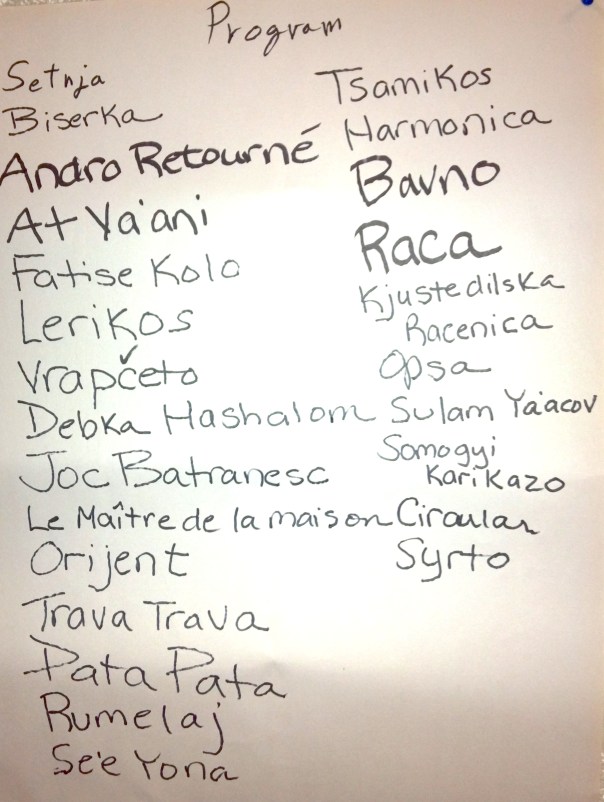 Program
Setnja
Biserka
Andro Retourné
At Ya'ani
Fatise Kolo
Lerikos
Vrapčeto
Debka Hashalom
Joc Batranesc
Le Maître de la maison
Orijent
Trava Trava
Pata Pata
Rumelaj
Se'e Yona
Tsamikos
Harmonica
Bavno
Raca
Kjustedilska
Racenica
Opsa
Sulam Ya'acov
Somogyi
Karikazo
Circular
Syrto